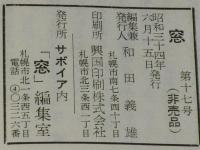 窓
第十七号
(非売品)
昭和三十四年
六月十五日発行
編集兼
発行人 和田義雄
札幌市南七条西四丁目
印刷所 興国印刷株式会社
札幌市北三条西二丁目
発行所 サボイア内
「窓」編集室
札幌市北一条西五丁目
電話 ④〇三二六番